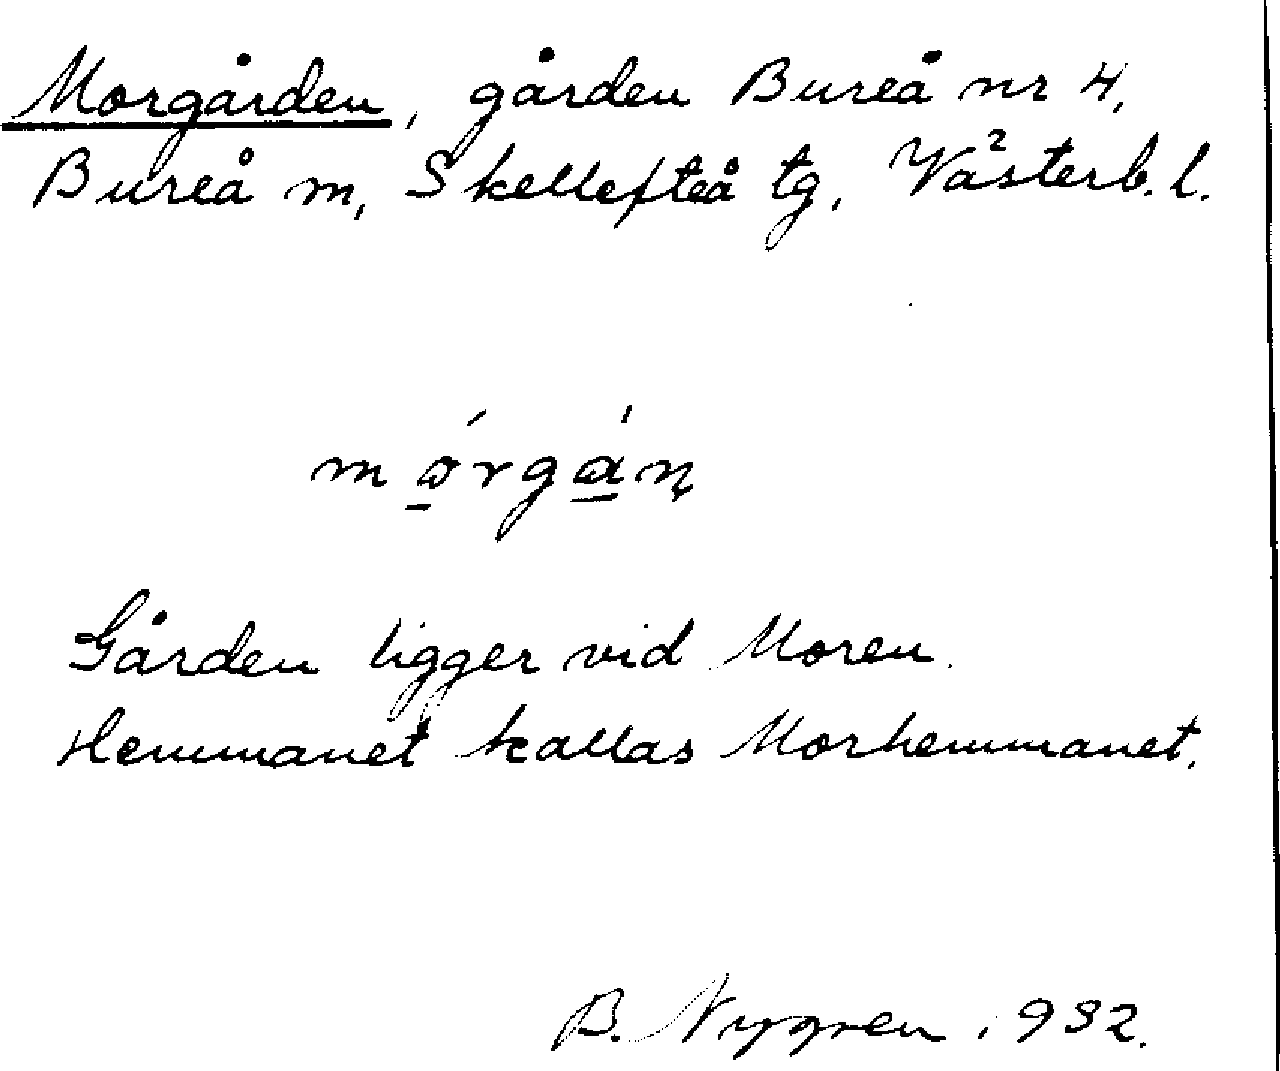 Morgården, gården Bureå nr 4,
Bureå m, Skellefteå tg, Västerb. l.
mǫ́rgạ́ṇ
Gården ligger vid Moren.
Hemmanet kallas Morhemmanet.
B. Nygren 1932.